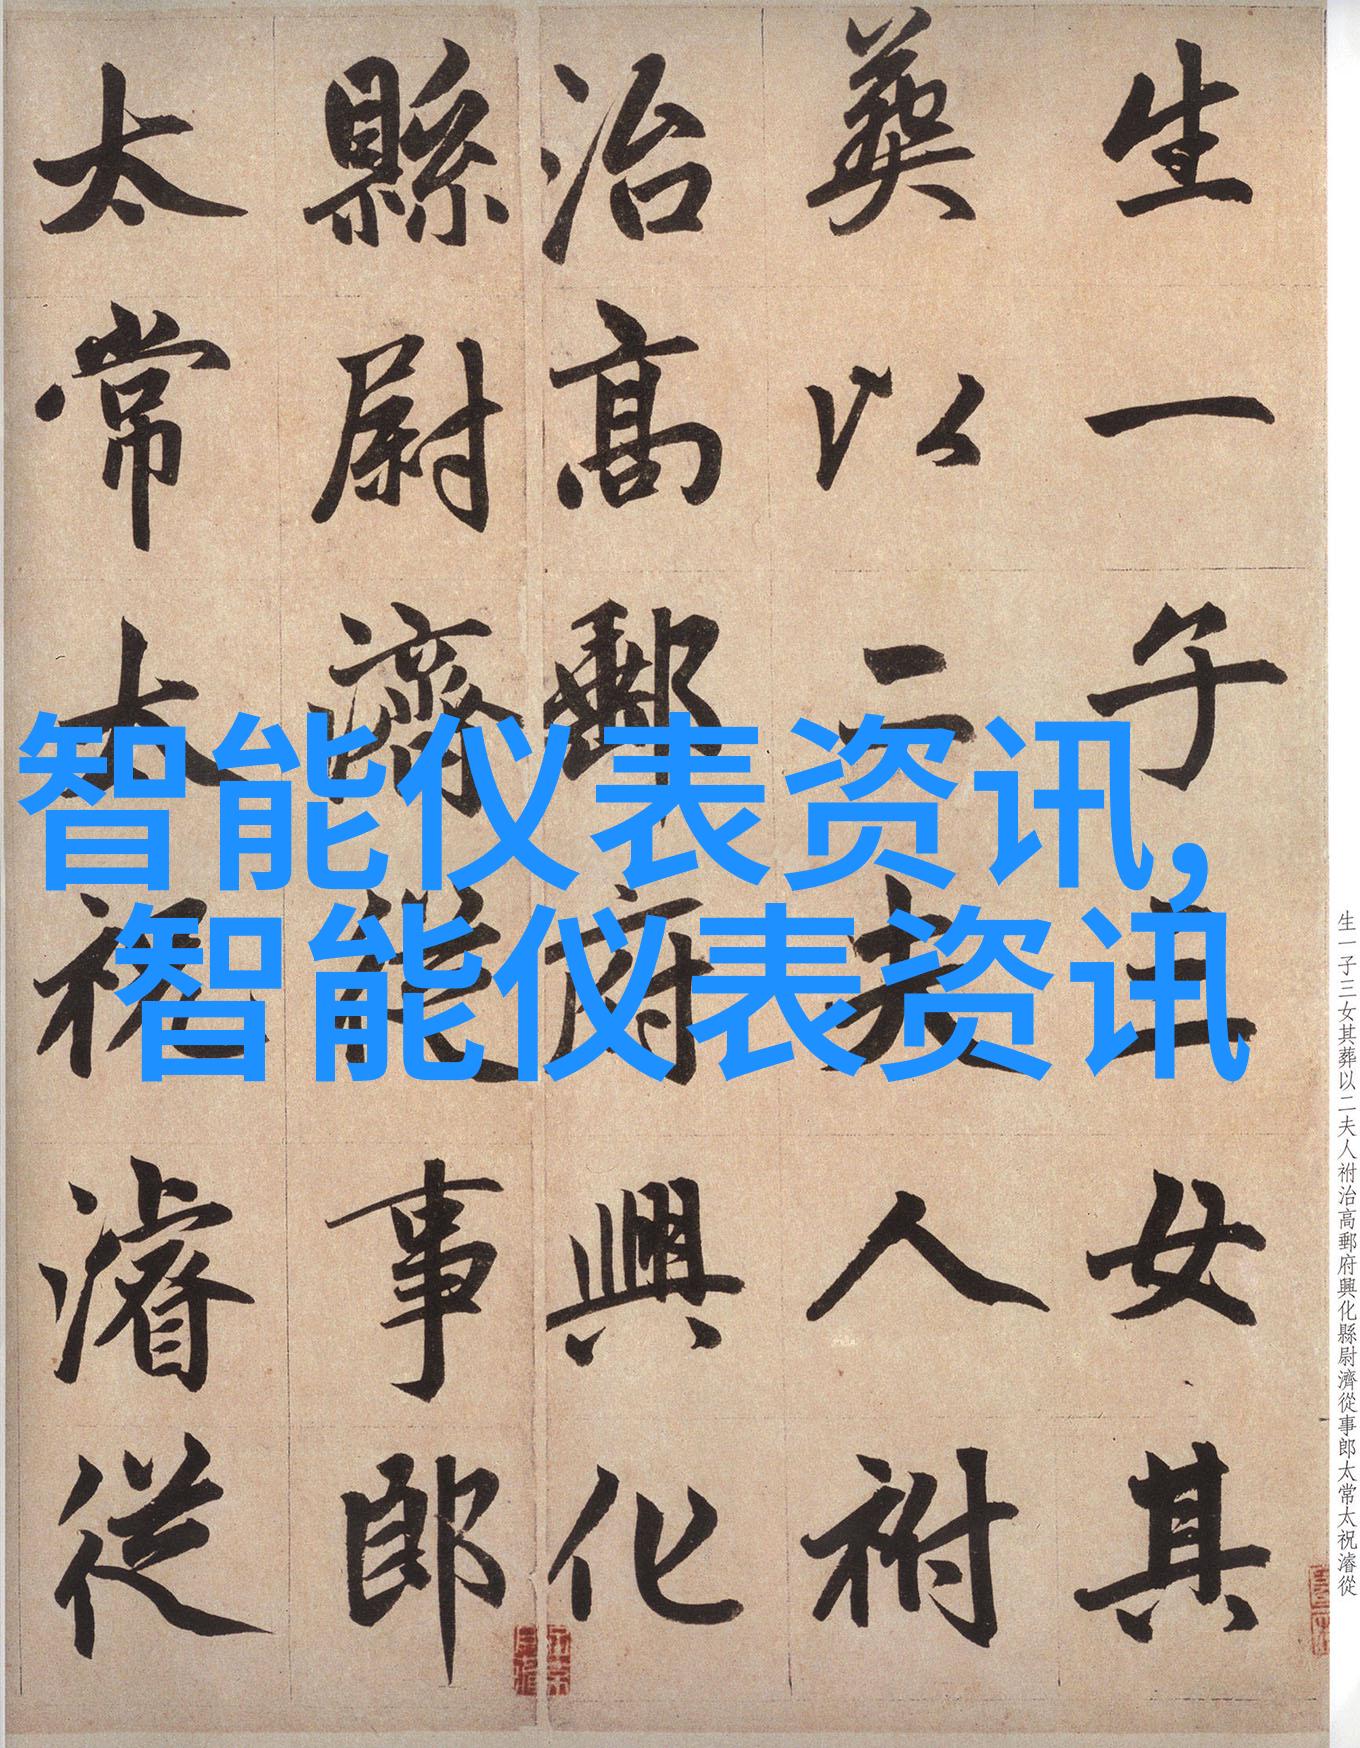 生一子三女其
葬以二夫人祔
治高郵府興化
縣尉濟從事郎
太常太祝濬從
智能仪表资讯,
智能仪表资讯
生一子三女其葬以二夫人祔治高郵府興化縣尉濟從事郎太常太祝濬從